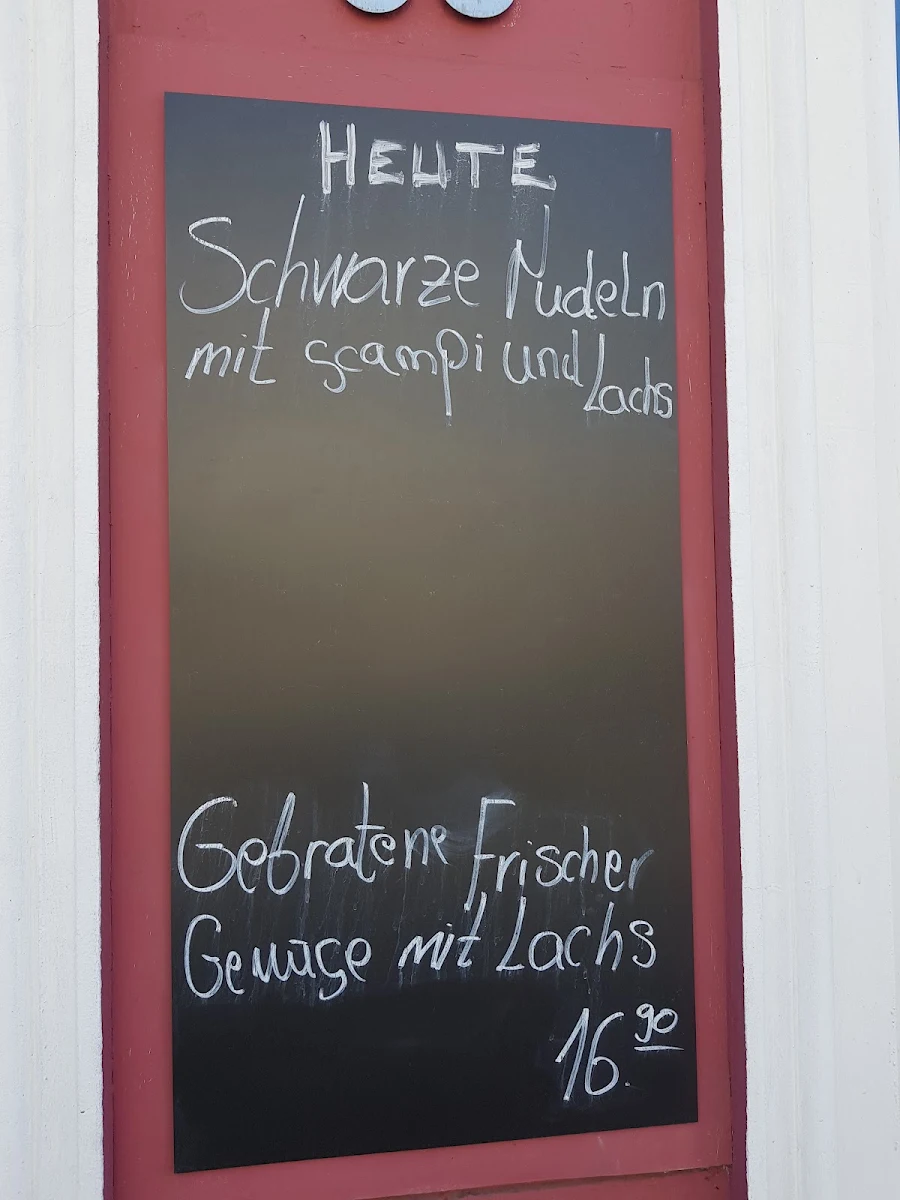 HEUTE
Schwarze Nudeln
mit scampi und Lachs
Gebratene Frischer
Gemuse mit Lachs
16.90